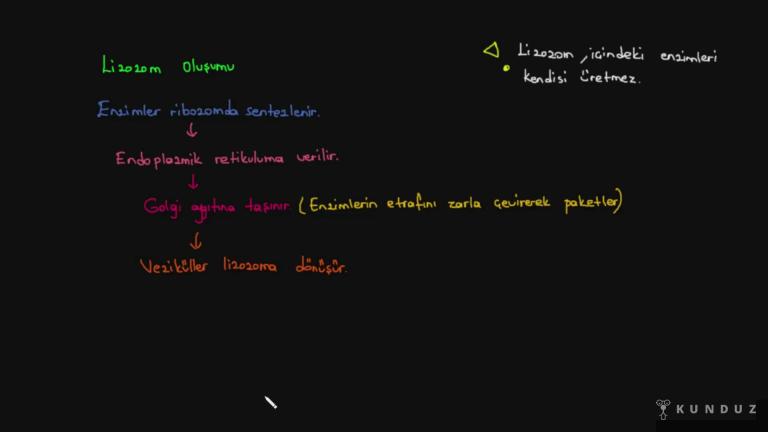 Lizozom Oluşumu
Lizozom, içindeki enzimleri
kendisi üretmez.
Enzimler ribozomda sentezlenir.
Endoplazmik retikuluma verilir.
Golgi aygıtına taşınır. (Enzimlerin etrafını zarla çevirerek paketler)
Veziküller lizozoma dönüşür.
KUNDUZ